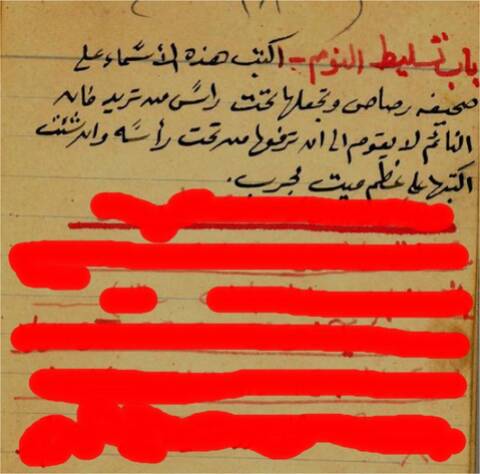 باب تسليط النوم - اكتب هذه الأسماء على
صحيفه رصاص وتجعلها تحت راس من تريد فان
النائم لا يقوم الى ان ترفعها من تحت رأسه وان شئت
اكتبها على عظم ميت مجرب .